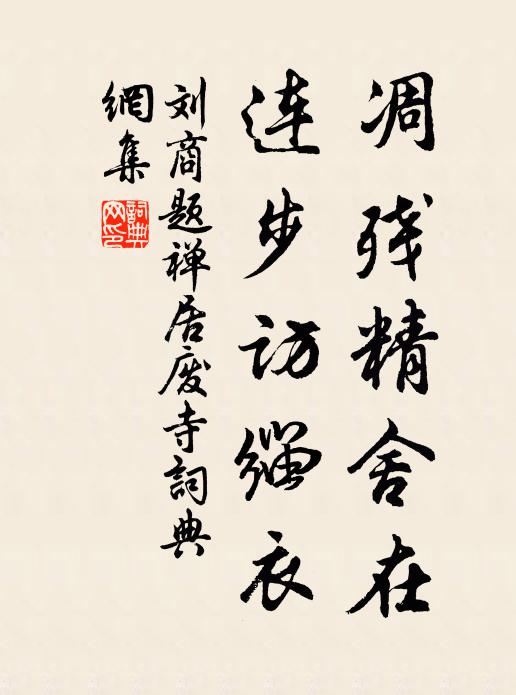 凋残精舍在
连步访缁衣
刘商题禅居废寺詞典
網集
詞典
网印